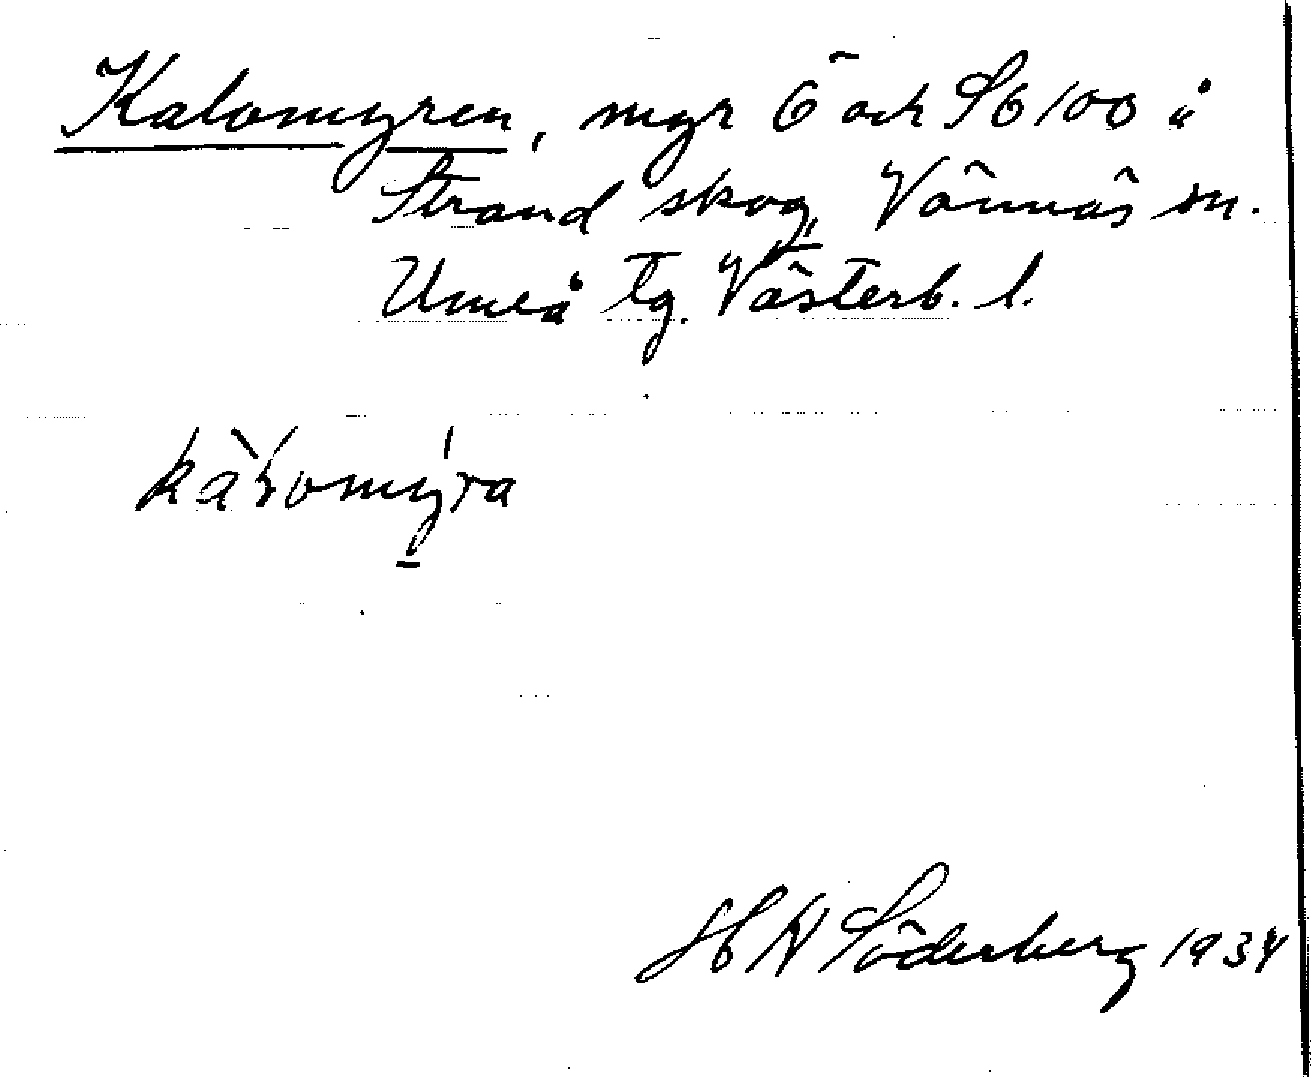 Kalomyren, myr Ö och Sb 100 å
Strand skog, Vännäs sn.
Umeå tg. Västerb. l.
H N Söderberg 1934